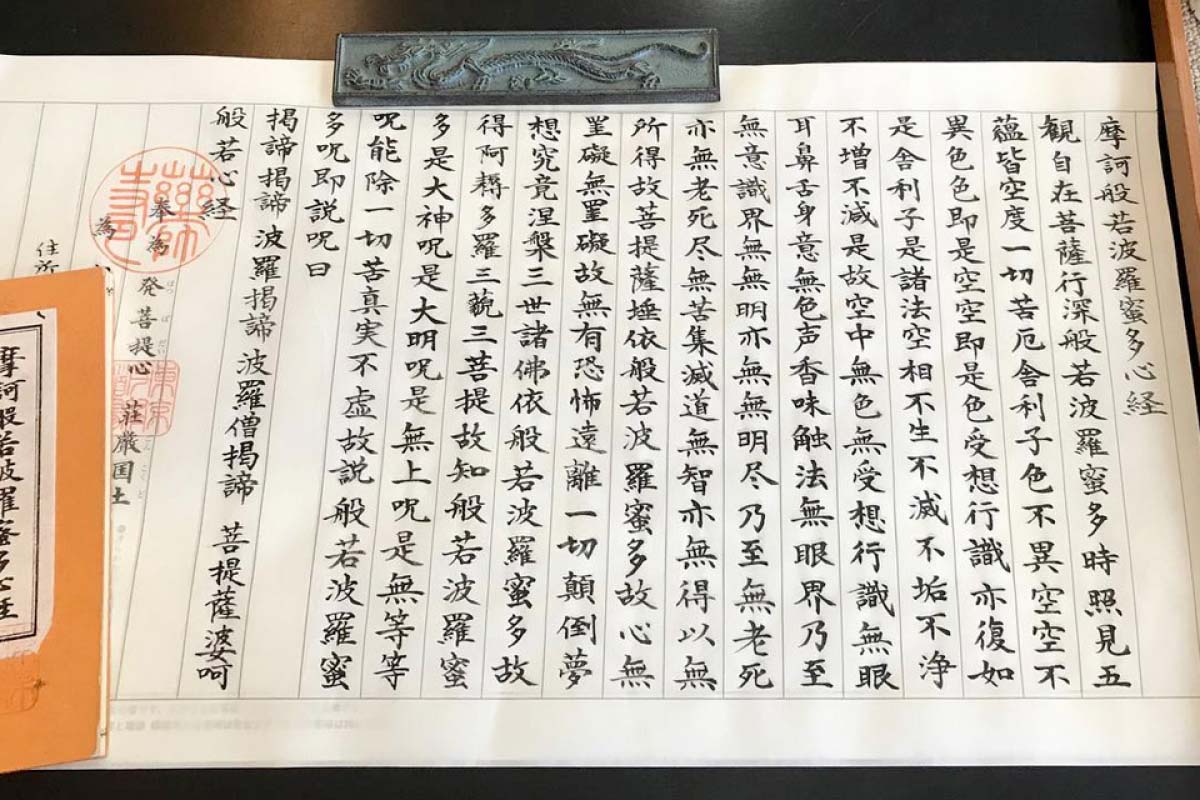 摩訶般若波羅蜜多心経
観自在菩薩行深般若波羅蜜多時照見五
蘊皆空度一切苦厄舎利子色不異空空不
異色色即是空空即是色受想行識亦復如
是舎利子是諸法空相不生不滅不垢不浄
不増不減是故空中無色無受想行識無眼
耳鼻舌身意無色声香味触法無眼界乃至
無意識界無無明亦無無明尽乃至無老死
亦無老死尽無苦集滅道無智亦無得以無
所得故菩提薩埵依般若波羅蜜多故心無
罣礙無罣礙故無有恐怖遠離一切顛倒夢
想究竟涅槃三世諸佛依般若波羅蜜多故
得阿耨多羅三藐三菩提故知般若波羅蜜
多是大神呪是大明呪是無上呪是無等等
呪能除一切苦真実不虚故説般若波羅蜜
多呪即説呪曰
掲諦掲諦波羅掲諦波羅僧掲諦 菩提薩婆呵
般若心経
奉為 発菩提心 荘厳国土
為
住所
薬師寺
摩訶般若波羅蜜多心経